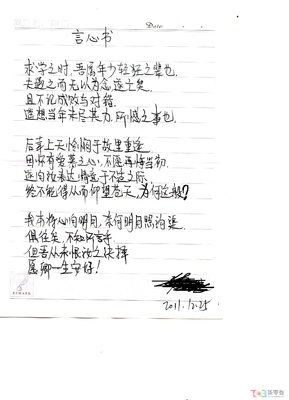 Date
言心书
求学之时,吾属年少轻狂之辈也
夫趣之而无以为念
且不记成败与对错
遥想当年未尽其力,所憾之事也
后幸上天怜悯于故里重逢
因怀有爱慕之心,不愿再悔当初
遂向汝表达情意于不达之际
终不能得从而仰望苍天,为何这般?
我本将心向明月,奈何明月照沟渠
俱往矣,不知所言
但吾从未恨汝之抉择
愿卿一生安好!
2011.12.25